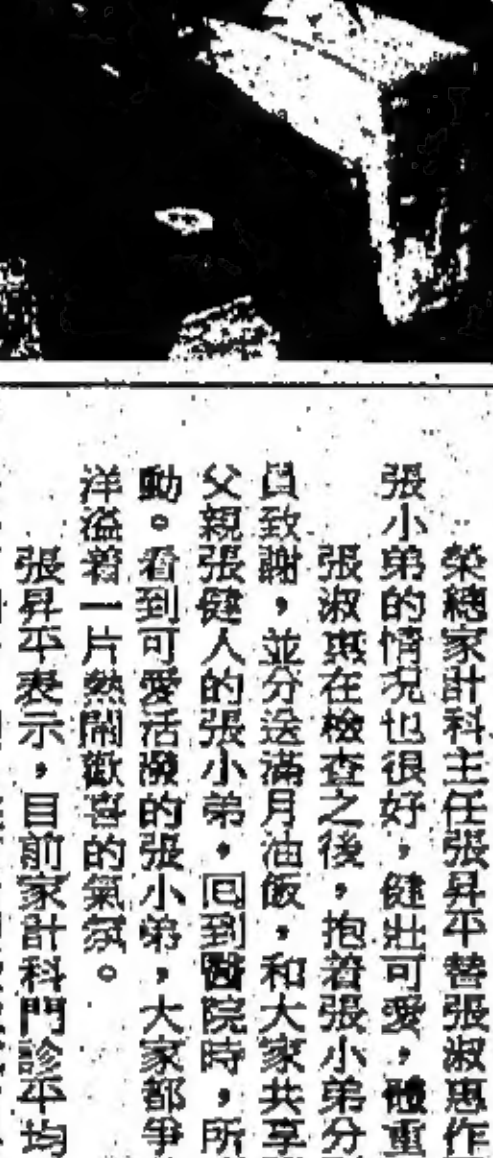 榮總家計科主任張昇平替張淑惠作
張小弟的情況也很好，健壯可愛，體重
張淑惠在檢查之後，抱着張小弟分
員致謝，並分送滿月油飯，和大家共享
父親張健人的張小弟，回到醫院時，所
動。看到可愛活潑的張小弟，大家都爭
洋溢着一片熱鬧歡喜的氣氛。
張昇平表示，目前家計科門診平均